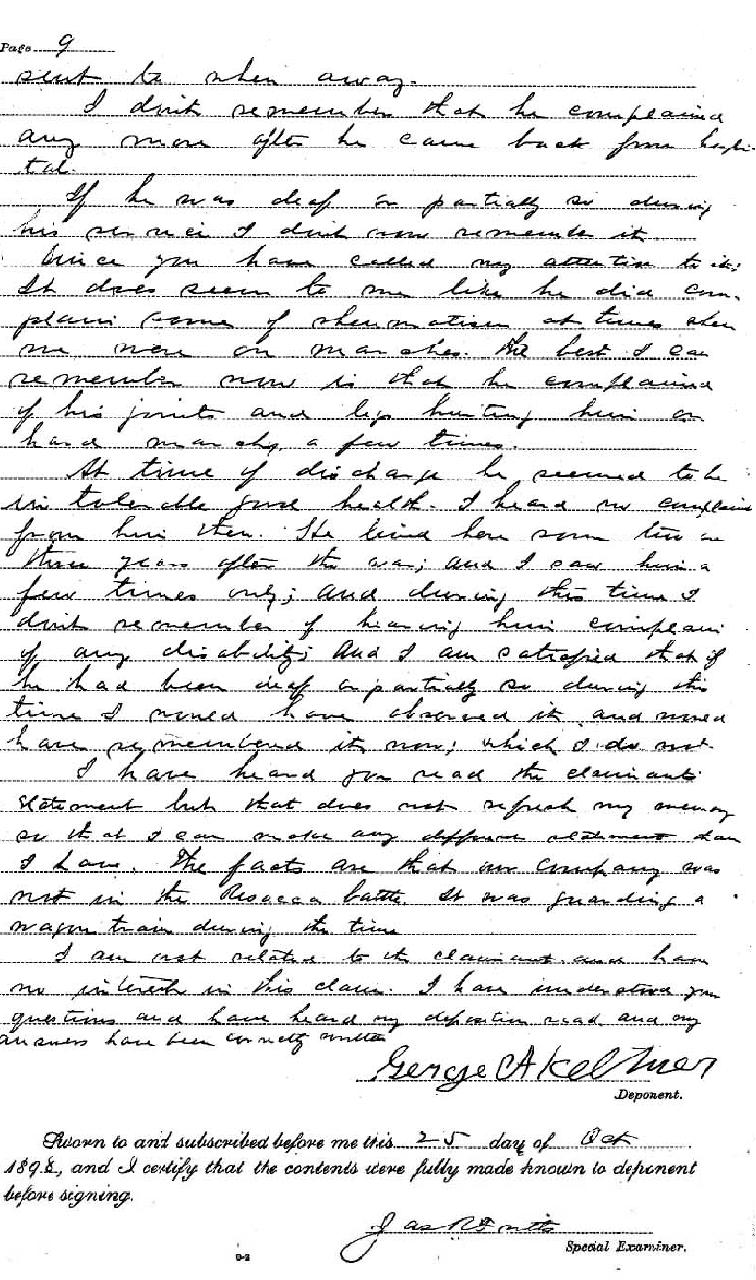 Page 9
sent to when away.
I don't remember that he complained
any more after he came back from hospi-
tal.
If he was deaf or partially so during
his service I don't now remember it.
Since you have called my attention to it;
It does seem to me like he did com-
plain some of rheumatism at times when
we were on marches. The best I can
remember now is that he complained
of his joints and legs hurting him on
hard marches a few times.
At time of discharge he seemed to be
in tolerable good health. I heard no complaint
from him then. He lived here some two or
three years after the war; and I saw him a
few times only; and during this time I
don't remember of hearing him complain
of any disability; And I am satisfied that if
he had been deaf or partially so during this
time I would have observed it and would
have remembered it now; which I do not.
I have heard you read the claimants
statement but that does not refresh my memory
so that I can make any different statement than
I have. The facts are that our company was
not in the Resacca battle. It was guarding a
wagon train during the time
I am not related to the claimant and have
no interest in this claim. I have understood your
questions and have heard my deposition read and my
answers have been correctly written
George A Keltner
Deponent.
Sworn to and subscribed before me this 25 day of Oct
1892, and I certify that the contents were fully made known to deponent
before signing.
Jas R Fritts
Special Examiner.